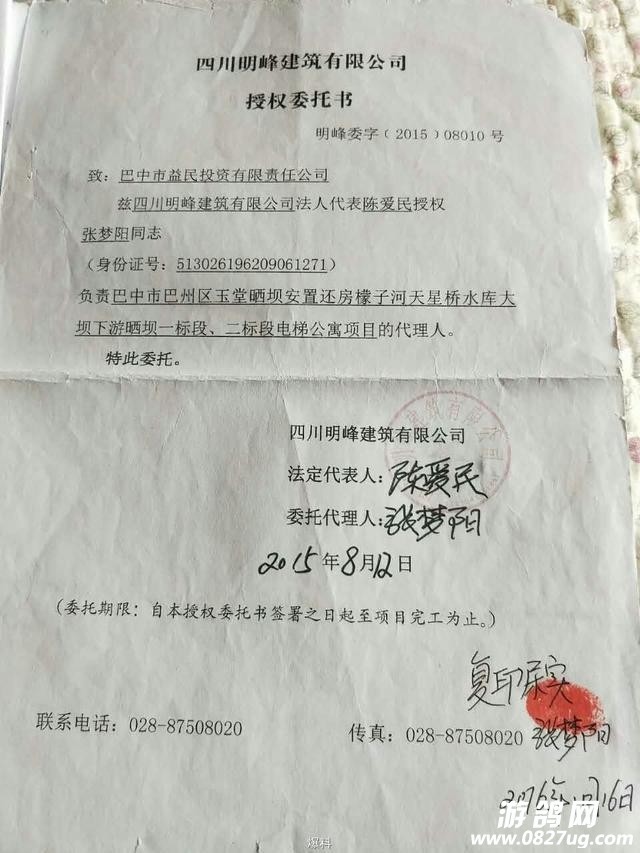 四川明峰建筑有限公司
授权委托书
明峰委字（2015）08010 号
致：巴中市益民投资有限责任公司
兹四川明峰建筑有限公司法人代表陈爱民授权
张梦阳同志
（身份证号：513026196209061271）
负责巴中市巴州区玉堂晒坝安置还房檬子河天星桥水库大
坝下游晒坝一标段、二标段电梯公寓项目的代理人。
特此委托。
四川明峰建筑有限公司
法定代表人：陈爱民
委托代理人：张梦阳
2015年8月12日
（委托期限：自本授权委托书签署之日起至项目完工为止。）
复印属实
联系电话：028-87508020
传真：028-87508020 张梦阳
月16日
游鸽网
www.0827ug.com
爆料